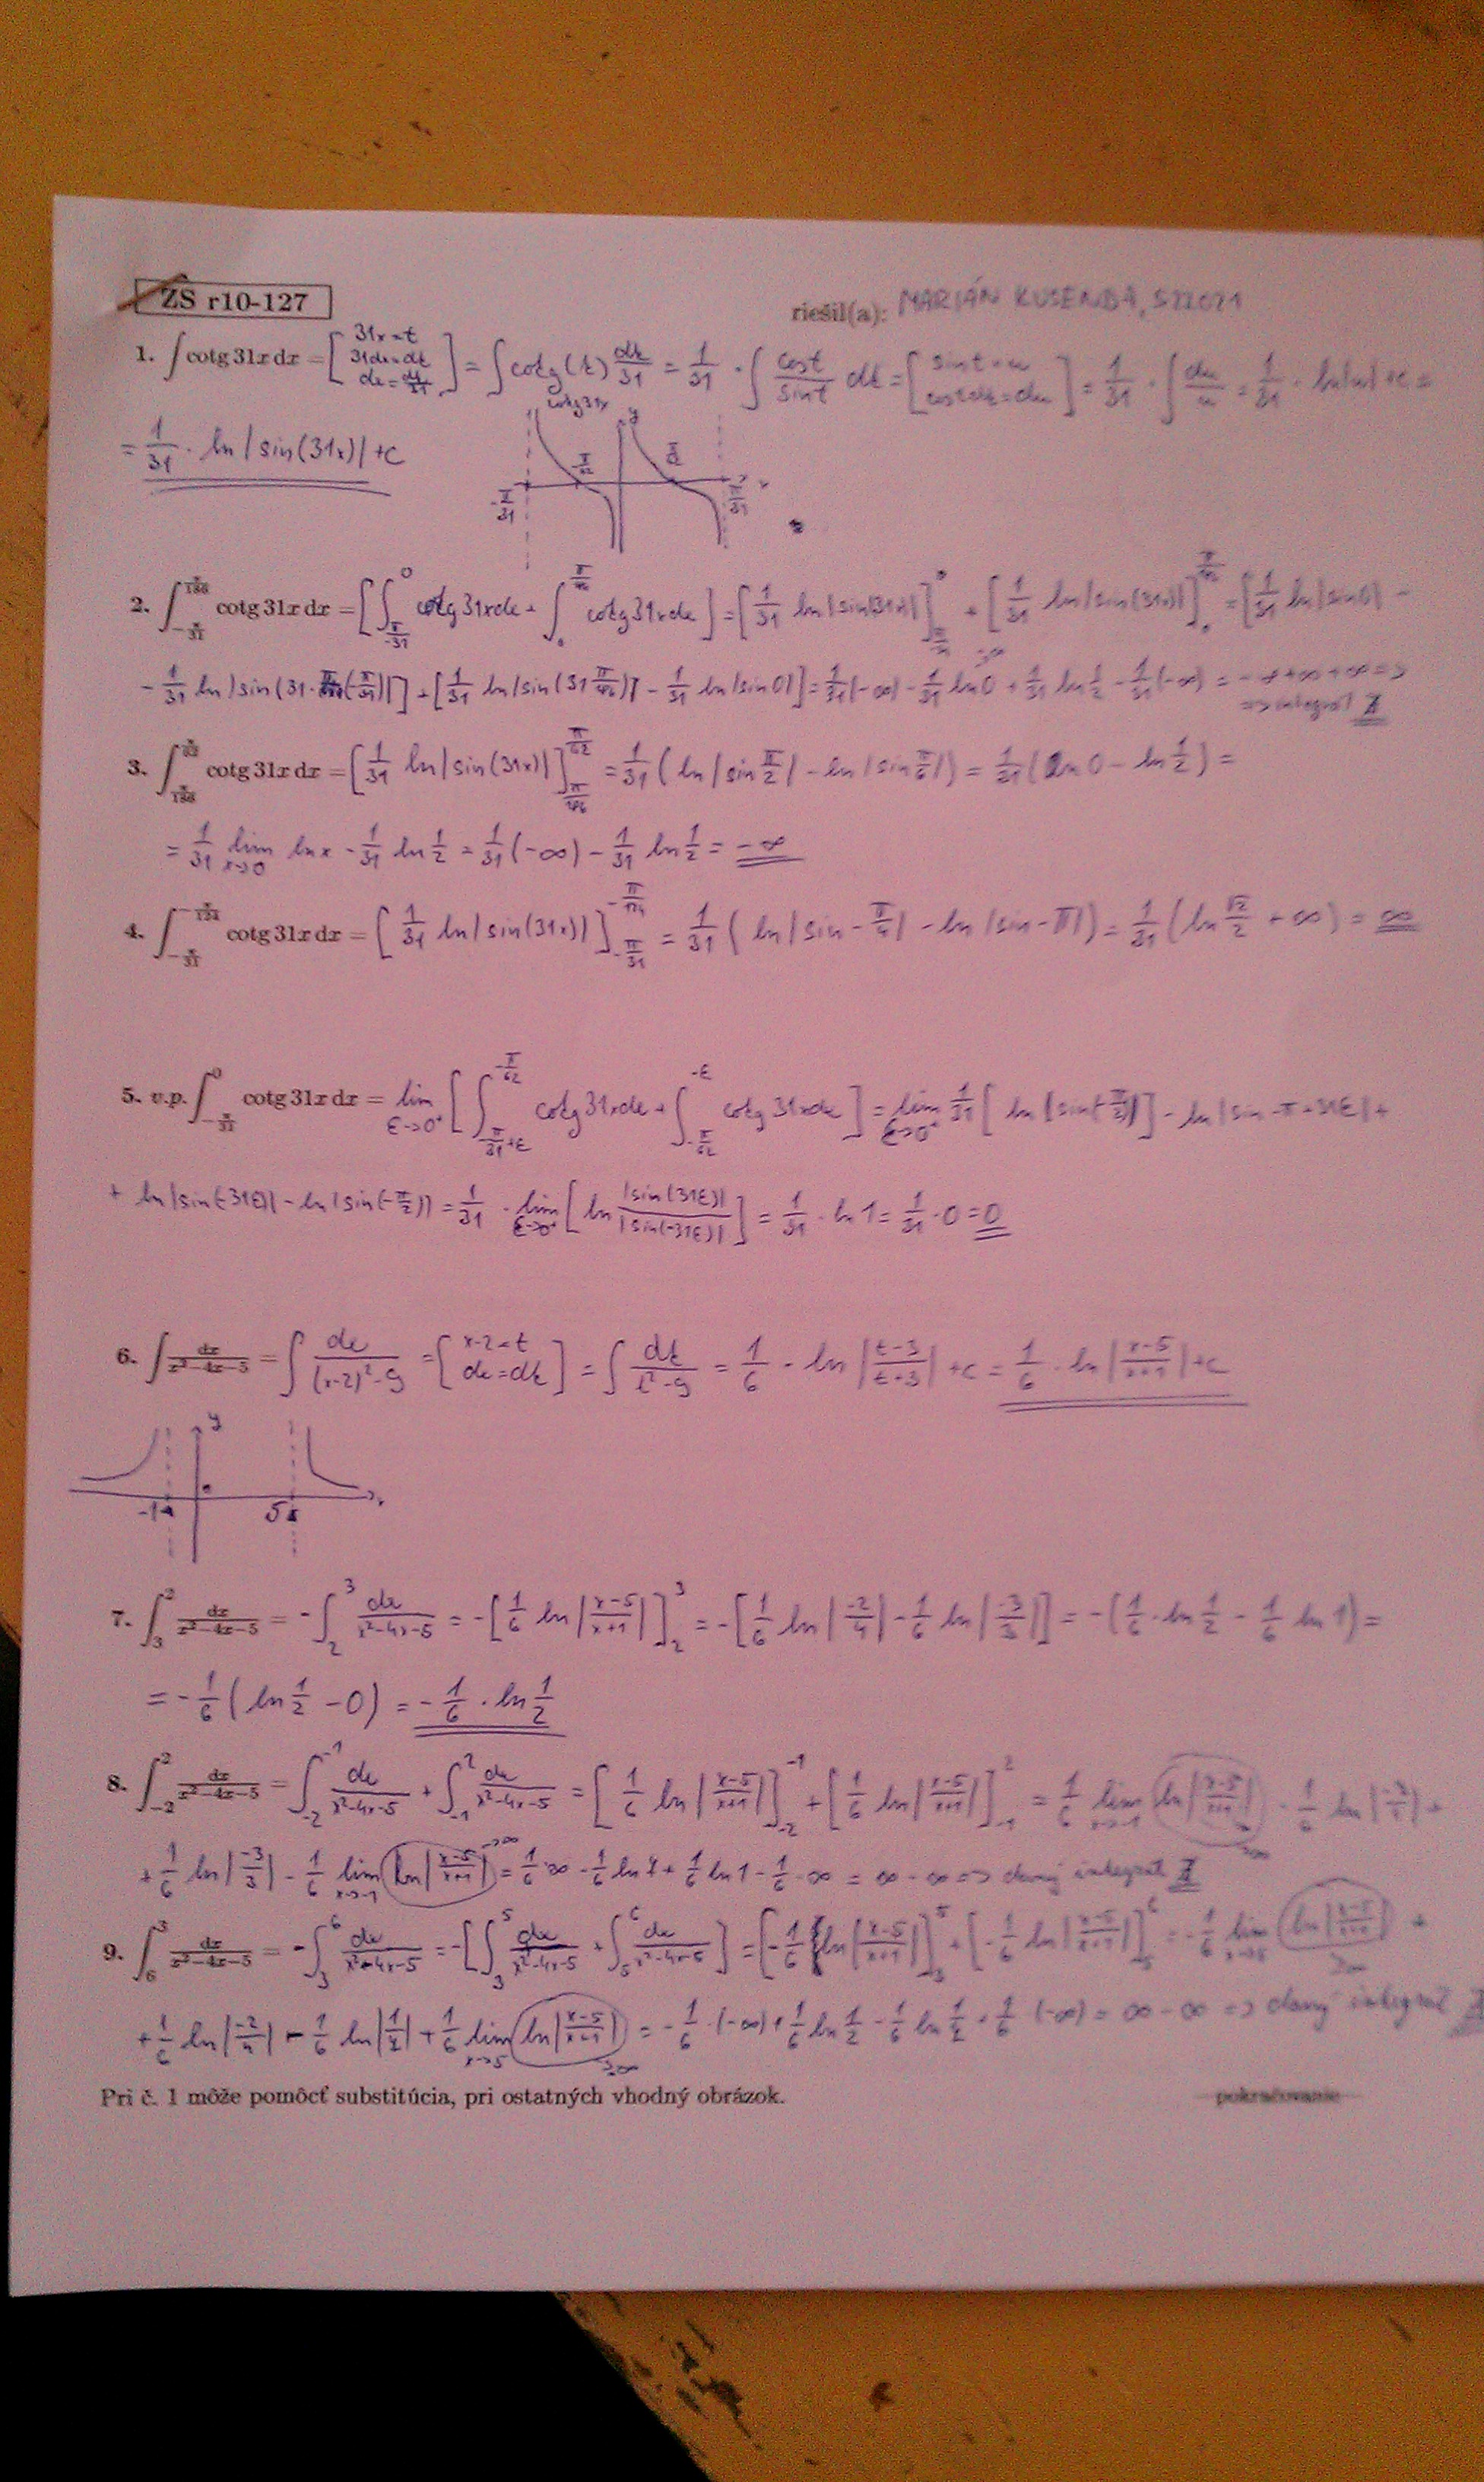 ZS r10-127
riešil(a): MARIÁN KUSENDA,
1. ∫ cotg 31x dx = [31x=t, 31dx=dt, dx=dt/31] = ∫ cotg(t) dt/31 = 1/31 · ∫ cos t/sin t dt = [sin t = u, cos t dt = du] = 1/31 · ∫ du/u = 1/31 · ln|u| + c =
= 1/31 · ln|sin(31x)| + c
cotg 31x y
-π/31 -π/62 π/62 π/31 x
2. ∫_{-π/31}^{π/186} cotg 31x dx = [∫_{-π/31}^{0} cotg 31x dx + ∫_{0}^{π/186} cotg 31x dx] = [1/31 ln|sin(31x)|]_{-π/31}^{0} + [1/31 ln|sin(31x)|]_{0}^{π/186} = [1/31 ln|sin 0| -
- 1/31 ln|sin(31·(-π/31))|] + [1/31 ln|sin(31 π/186)| - 1/31 ln|sin 0|] = 1/31(-∞) - 1/31 ln 0 + 1/31 ln 1/2 - 1/31(-∞) = -∞+∞+∞ =>
=> integrál ∄
3. ∫_{π/186}^{π/62} cotg 31x dx = [1/31 ln|sin(31x)|]_{π/186}^{π/62} = 1/31 (ln|sin π/2| - ln|sin π/6|) = 1/31 (ln 0 - ln 1/2) =
= 1/31 lim_{x→0} ln x - 1/31 ln 1/2 = 1/31(-∞) - 1/31 ln 1/2 = -∞
4. ∫_{-π/31}^{-π/124} cotg 31x dx = [1/31 ln|sin(31x)|]_{-π/31}^{-π/124} = 1/31 (ln|sin -π/4| - ln|sin -π|) = 1/31 (ln √2/2 + ∞) = ∞
5. v.p. ∫_{-π/31}^{0} cotg 31x dx = lim_{ε→0⁺} [∫_{-π/31+ε}^{-π/62} cotg 31x dx + ∫_{-π/62}^{-ε} cotg 31x dx] = lim_{ε→0⁺} 1/31 [ln|sin(-π/2)|] - ln|sin -π+31ε| +
+ ln|sin(-31ε)| - ln|sin(-π/2)| = 1/31 · lim_{ε→0⁺} [ln |sin(31ε)|/|sin(-31ε)|] = 1/31 · ln 1 = 1/31 · 0 = 0
6. ∫ dx/(x²-4x-5) = ∫ dx/((x-2)²-9) = [x-2=t, dx=dt] = ∫ dt/(t²-9) = 1/6 · ln|(t-3)/(t+3)| + c = 1/6 · ln|(x-5)/(x+1)| + c
y
-1 5 x
7. ∫_{3}^{2} dx/(x²-4x-5) = -∫_{2}^{3} dx/(x²-4x-5) = -[1/6 ln|(x-5)/(x+1)|]_{2}^{3} = -[1/6 ln|-2/4| - 1/6 ln|-3/3|] = -(1/6 · ln 1/2 - 1/6 ln 1) =
= -1/6 (ln 1/2 - 0) = -1/6 · ln 1/2
8. ∫_{-2}^{2} dx/(x²-4x-5) = ∫_{-2}^{-1} dx/(x²-4x-5) + ∫_{-1}^{2} dx/(x²-4x-5) = [1/6 ln|(x-5)/(x+1)|]_{-2}^{-1} + [1/6 ln|(x-5)/(x+1)|]_{-1}^{2} = 1/6 lim_{x→-1} ln|(x-5)/(x+1)| →∞ - 1/6 ln +
+ 1/6 ln|-3/3| - 1/6 lim_{x→-1} ln|(x-5)/(x+1)| →∞ = 1/6·∞ - 1/6 ln 7 + 1/6 ln 1 - 1/6·∞ = ∞ - ∞ => daný integrál ∄
9. ∫_{6}^{3} dx/(x²-4x-5) = -∫_{3}^{6} dx/(x²-4x-5) = -[∫_{3}^{5} dx/(x²-4x-5) + ∫_{5}^{6} dx/(x²-4x-5)] = [-1/6 ln|(x-5)/(x+1)|]_{3}^{5} + [-1/6 ln|(x-5)/(x+1)|]_{5}^{6} = -1/6 lim_{x→5} ln|(x-5)/(x+1)| +
+ 1/6 ln|-2/4| - 1/6 ln|1/7| + 1/6 lim_{x→5} ln|(x-5)/(x+1)| = -1/6 · (-∞) + 1/6 ln 1/2 - 1/6 ln 1/7 + 1/6 (-∞) = ∞ - ∞ => daný integrál ∄
Pri č. 1 môže pomôcť substitúcia, pri ostatných vhodný obrázok.
pokračovanie